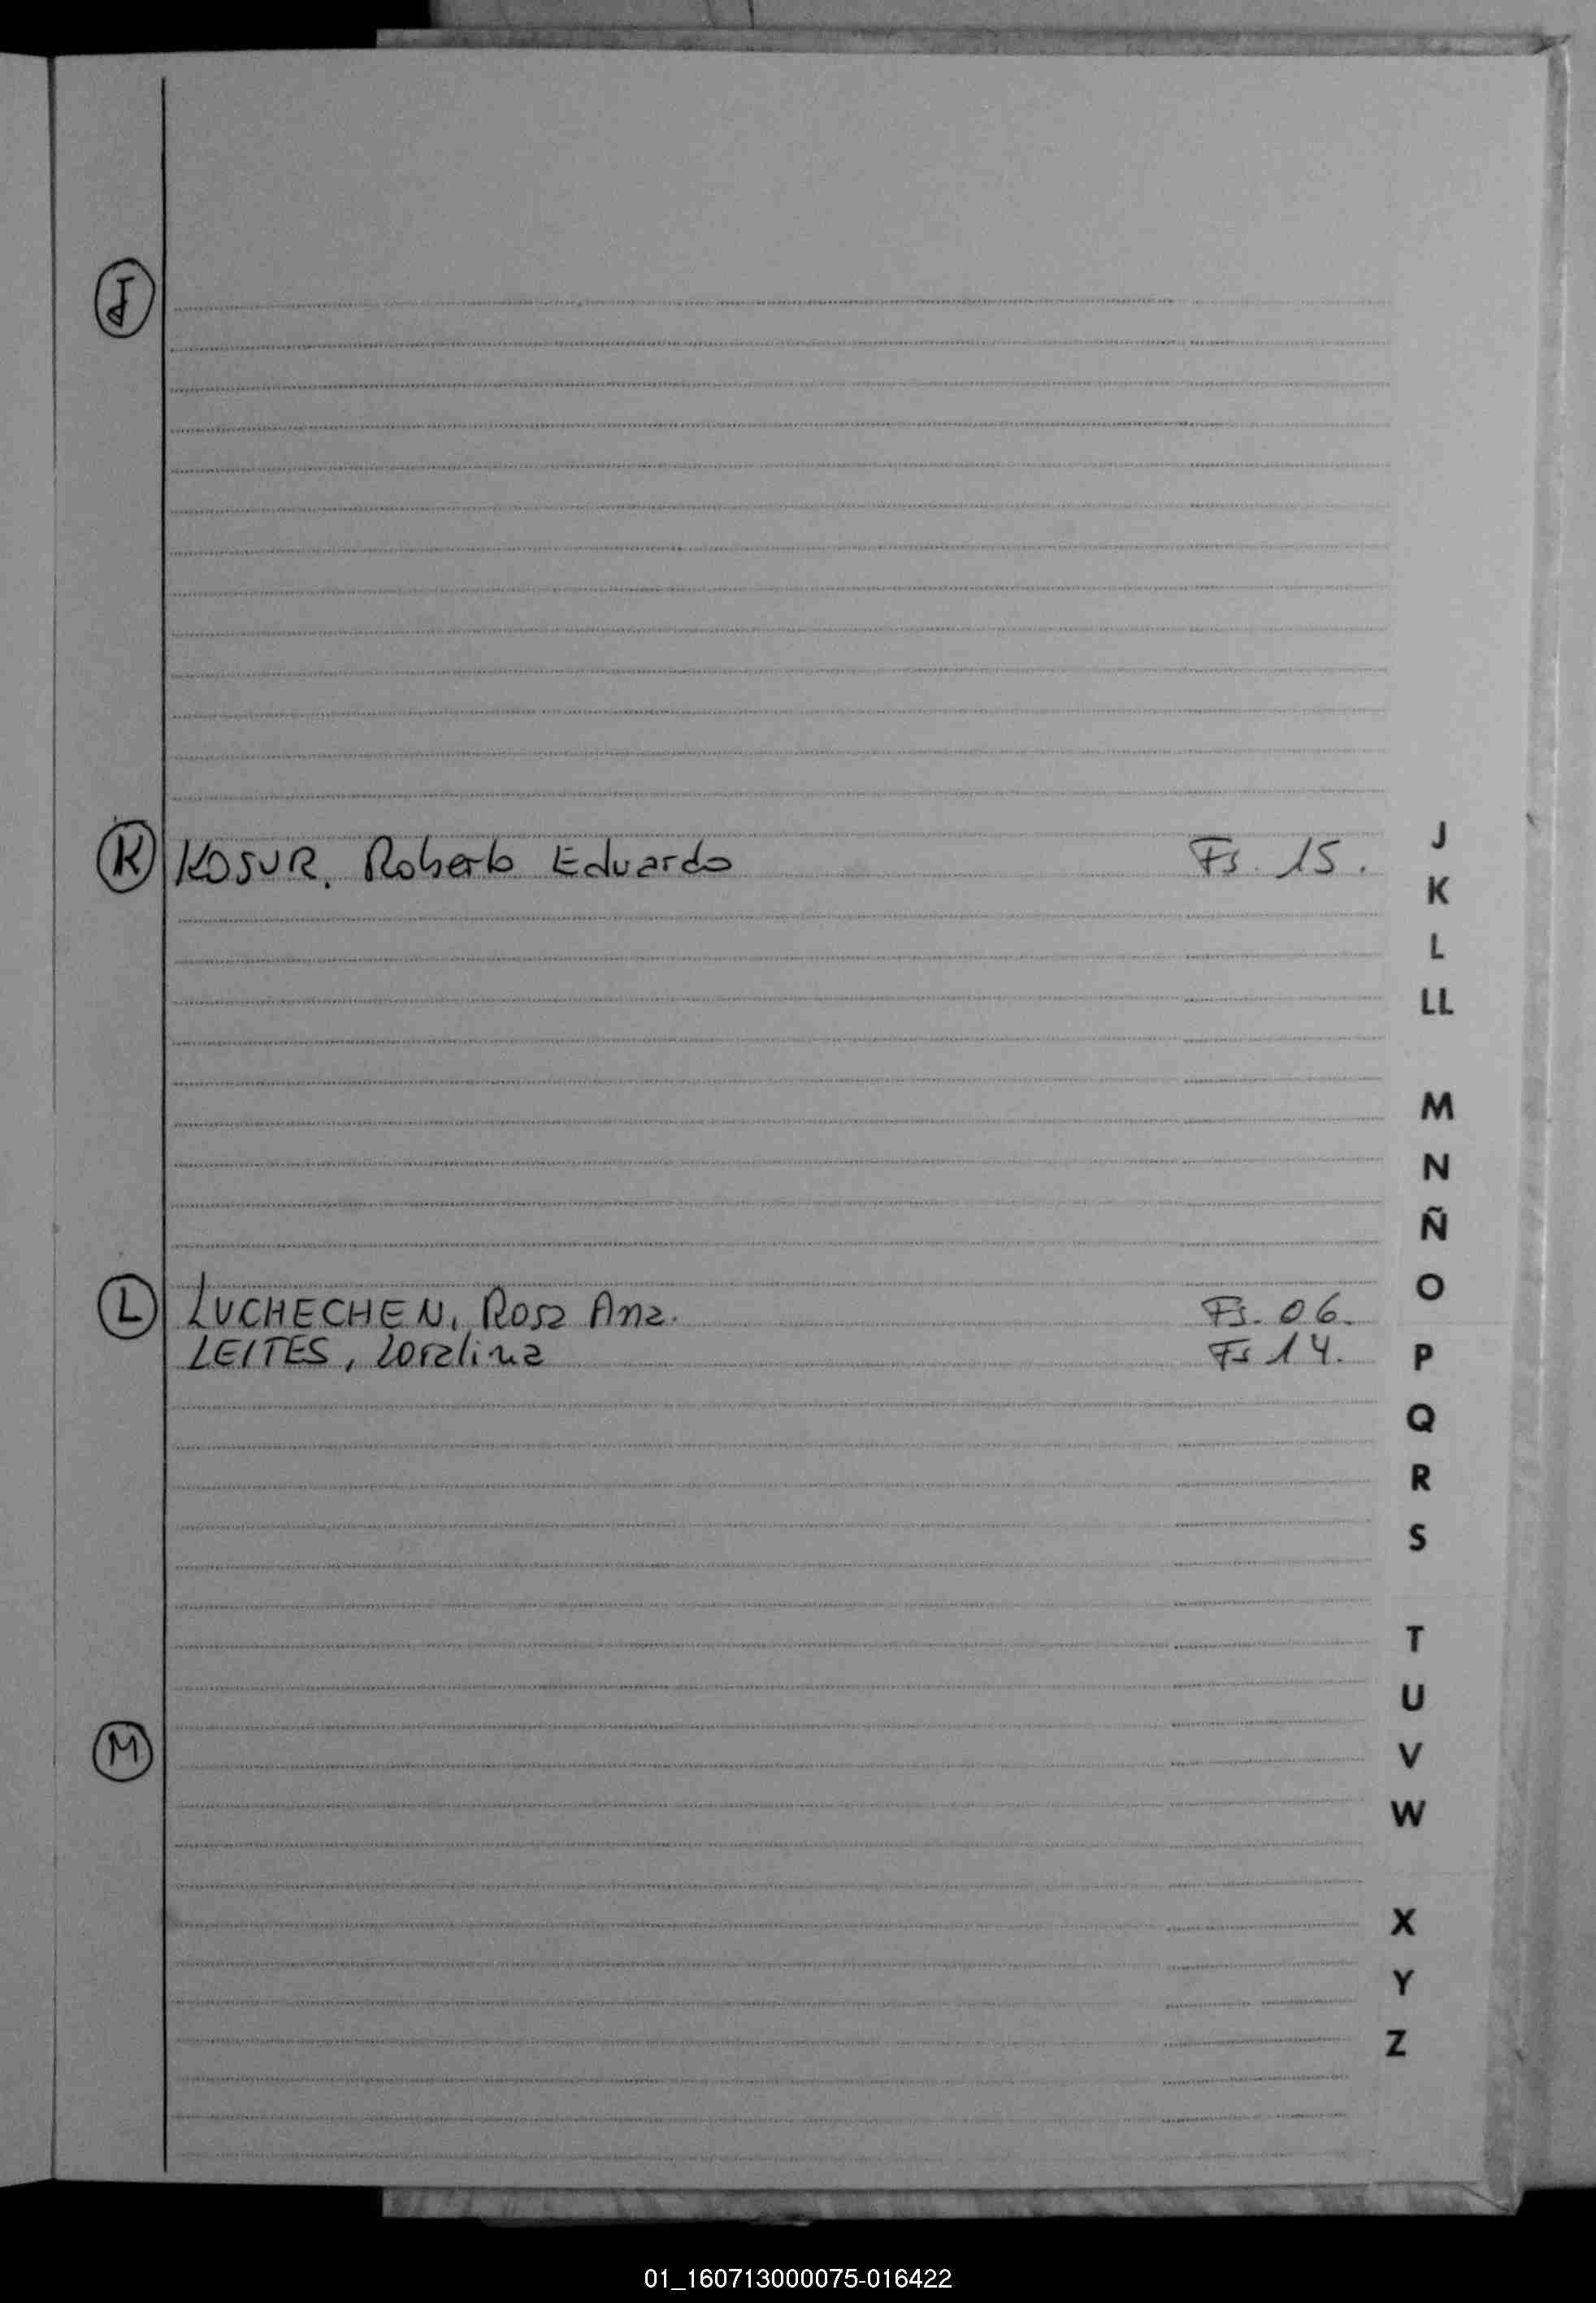 J
K KOSUR, Roberto Eduardo Fs. 15.
L LUCHECHEN, Rosa Ana. Fs. 06.
LEITES, Loralina Fs 14.
M
J
K
L
LL
M
N
Ñ
O
P
Q
R
S
T
U
V
W
X
Y
Z
01_160713000075-016422